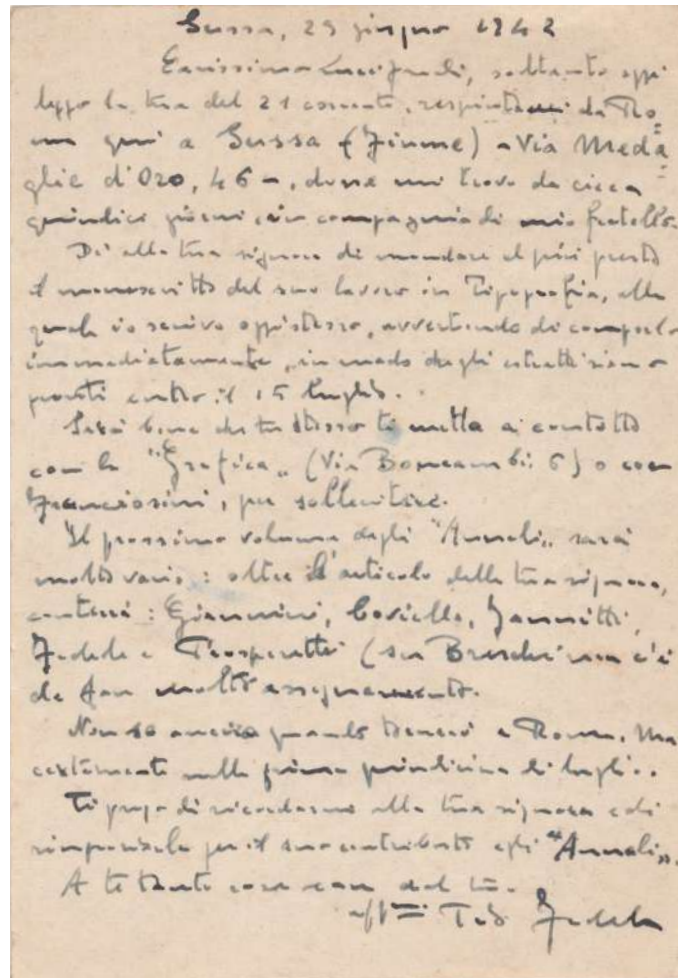 Sussa, 29 giugno 1942
Carissimo Lucifredi, soltanto oggi
leggo la tua del 21 corrente, respintami da Ro=
ma qui a Sussa (Fiume) - Via Meda=
glie d'Oro, 46 -, dove mi trovo da circa
quindici giorni, in compagnia di mio fratello.
Di' alla tua signora di mandare al più presto
il manoscritto del suo lavoro in Tipografia, alla
quale io scrivo oggi stesso, avvertendo di comporlo
immediatamente, in modo che gli estratti siano
pronti entro il 15 luglio.
Sarà bene che tu stesso ti metta a contatto
con la "Grafica" (Via Boncambi: 6) o con
Franciosini, per sollecitare.
Il prossimo volume degli "Annali" sarà
molto vario: oltre l'articolo della tua signora,
conterrà: Giannini, Coviello, Zannitti,
Fedele e Prosperetti (su Breschi non c'è
da fare molto assegnamento.
Non so ancora quando tornerò a Roma. Ma
certamente nella prima quindicina di luglio.
Ti prego di ricordarmi alla tua signora e di
ringraziarla per il suo contributo agli "Annali".
A te tante cose care dal tuo
aff=mo Fedele